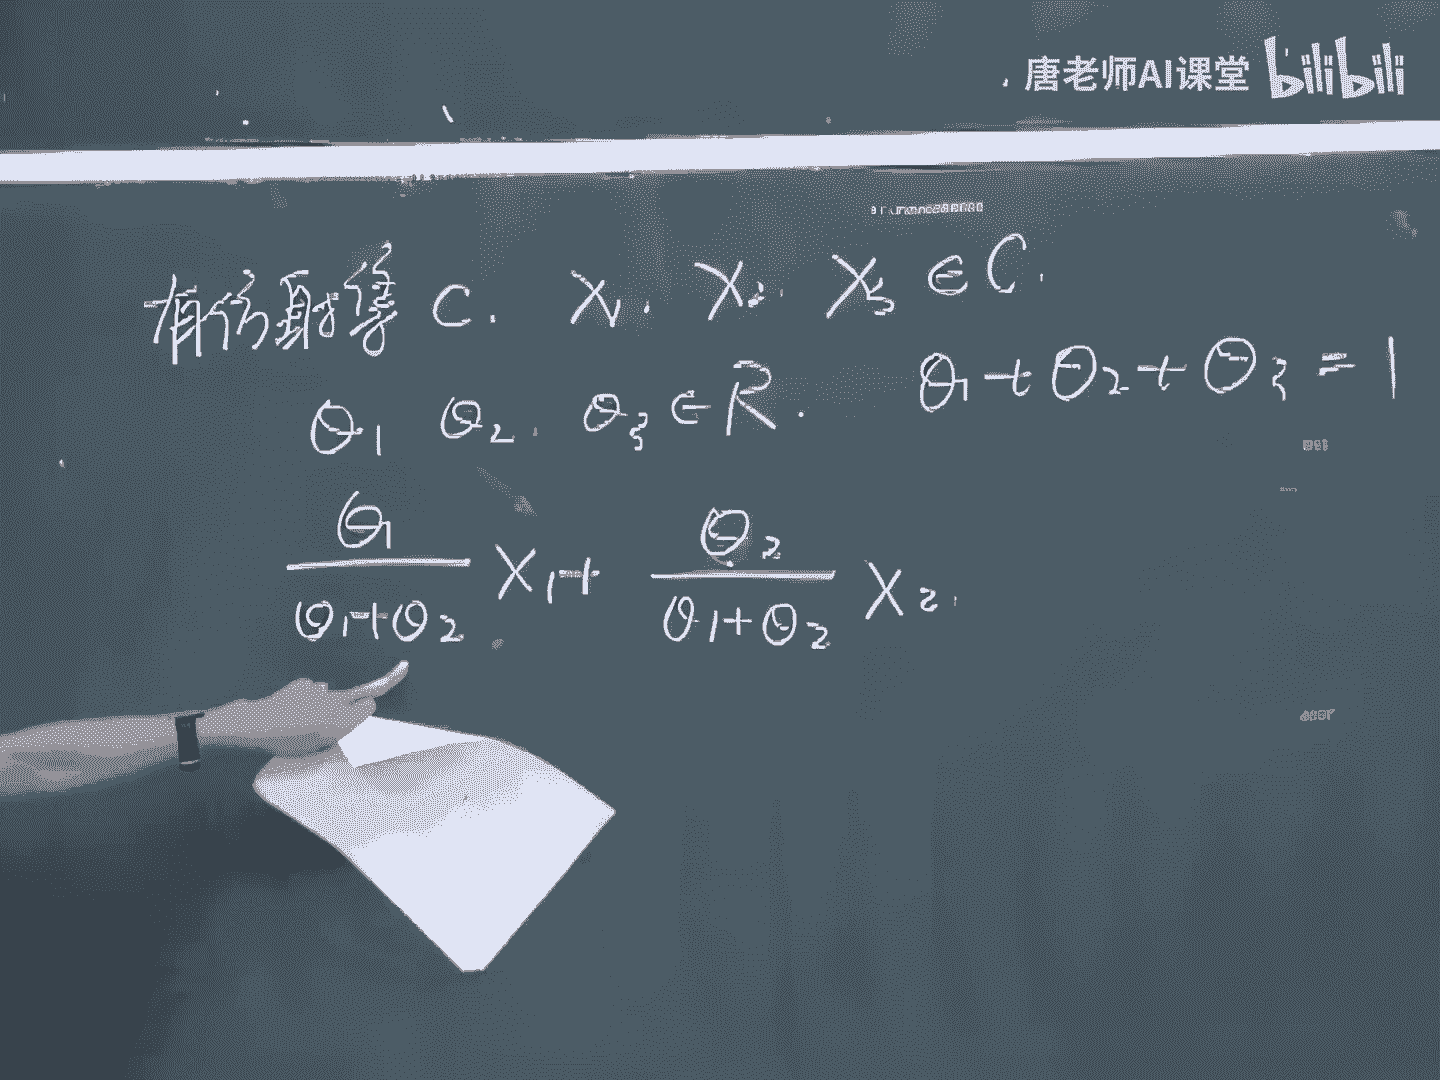 唐老师AI课堂 bilibili
有仿射集 C. X₁. X₂. X₃ ∈ C.
θ₁ θ₂. θ₃ ∈ R. θ₁+θ₂+θ₃=1
θ₁/(θ₁+θ₂) X₁+ θ₂/(θ₁+θ₂) X₂.